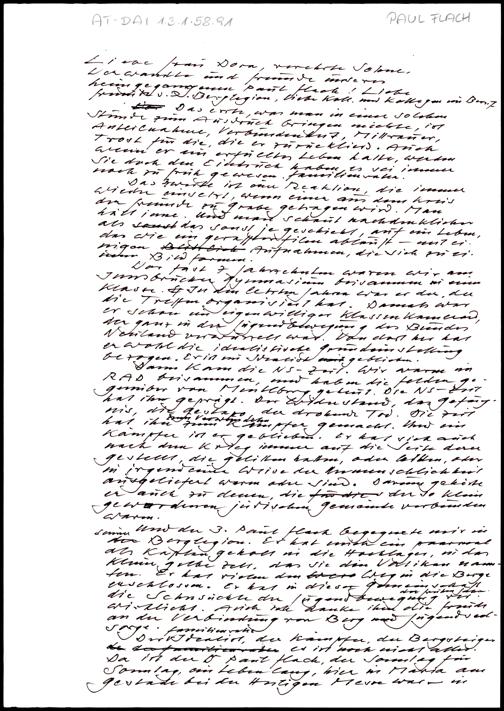 AT-DAI 13.1.58.91
PAUL FLACH
Liebe Frau Dora, verehrte Söhne,
Verwandte und Freunde unseres
heimgegangenen Paul Flach! Liebe
Freunde v. d. Berglegion,
Das erste, was man in einer solchen
Stunde zum Ausdruck bringen möchte, ist
Anteilnahme, Verbundenheit, Mittrauer,
Trost für die, die er zurückließ. Auch
wenn er ein erfülltes Leben hatte, werden
Sie doch den Eindruck haben, es sei immer
noch zu früh gewesen.
Das zweite ist eine Reaktion, die immer
wieder einsetzt, wenn einer aus dem Kreis
der Freunde zu Grabe getragen wird. Man
hält inne. Und man schaut nachdenklicher
als sonst das sonst je geschieht, auf ein Leben,
das wie ein geraffter Film abläuft - mit ei-
nigen Aufnahmen, die sich zu ei-
nem Bild formen.
Vor fast 7 Jahrzehnten waren wir am
Innsbrucker Gymnasium beisammen in einer
Klasse. In den letzten Jahren war er der, der
die Treffen organisiert hat. Damals war
er schon ein eigenwilliger Klassenkamerad,
der ganz in der Jugendbewegung des Bundes
Neuland verwurzelt war. Von dort her hat
er wohl die idealistische Grundeinstellung
bezogen. Er ist ein Idealist geblieben.
Dann kam die NS-Zeit. Wir waren im
RAD beisammen, und haben die
Die NS-Zeit
hat ihn geprägt. Der Widerstand, das Gefäng-
nis, die Gestapo, der drohende Tod. Die Zeit
hat ihn zum Kämpfer gemacht. Und ein
Kämpfer ist er geblieben. Er hat sich auch
nach dem Krieg immer auf die Seite derer
gestellt, die gelitten haben, oder leiden, oder
in irgendeiner Weise der Unmenschlichkeit
ausgeliefert waren oder sind. Darum gehörte
er auch zu denen, die der so klein
gewordenen jüdischen Gemeinde verbunden
waren.
Und der 3. Paul Flach begegnete mir in
seiner Berglegion. Er hat mich ein paarmal
als Kaplan geholt in die Hochlager, in das
kleine gelbe Zelt, das sie den Vatikan nann-
ten. Er hat vielen den Weg in die Berge
erschlossen. Er hat in dieser
die Sehnsüchte der Jugendbewegung ver-
wirklicht. Auch ich danke ihm die Freude
an der Verbindung von Berg und Jugendseel-
sorge.
Der Idealist, der Kämpfer, der Bergsteiger
es ist noch nicht alles.
Da ist der Paul Flach, der Sonntag für
Sonntag, ein Leben lang, hier in Maria am
Gestade bei der Heiligen Messe war - in